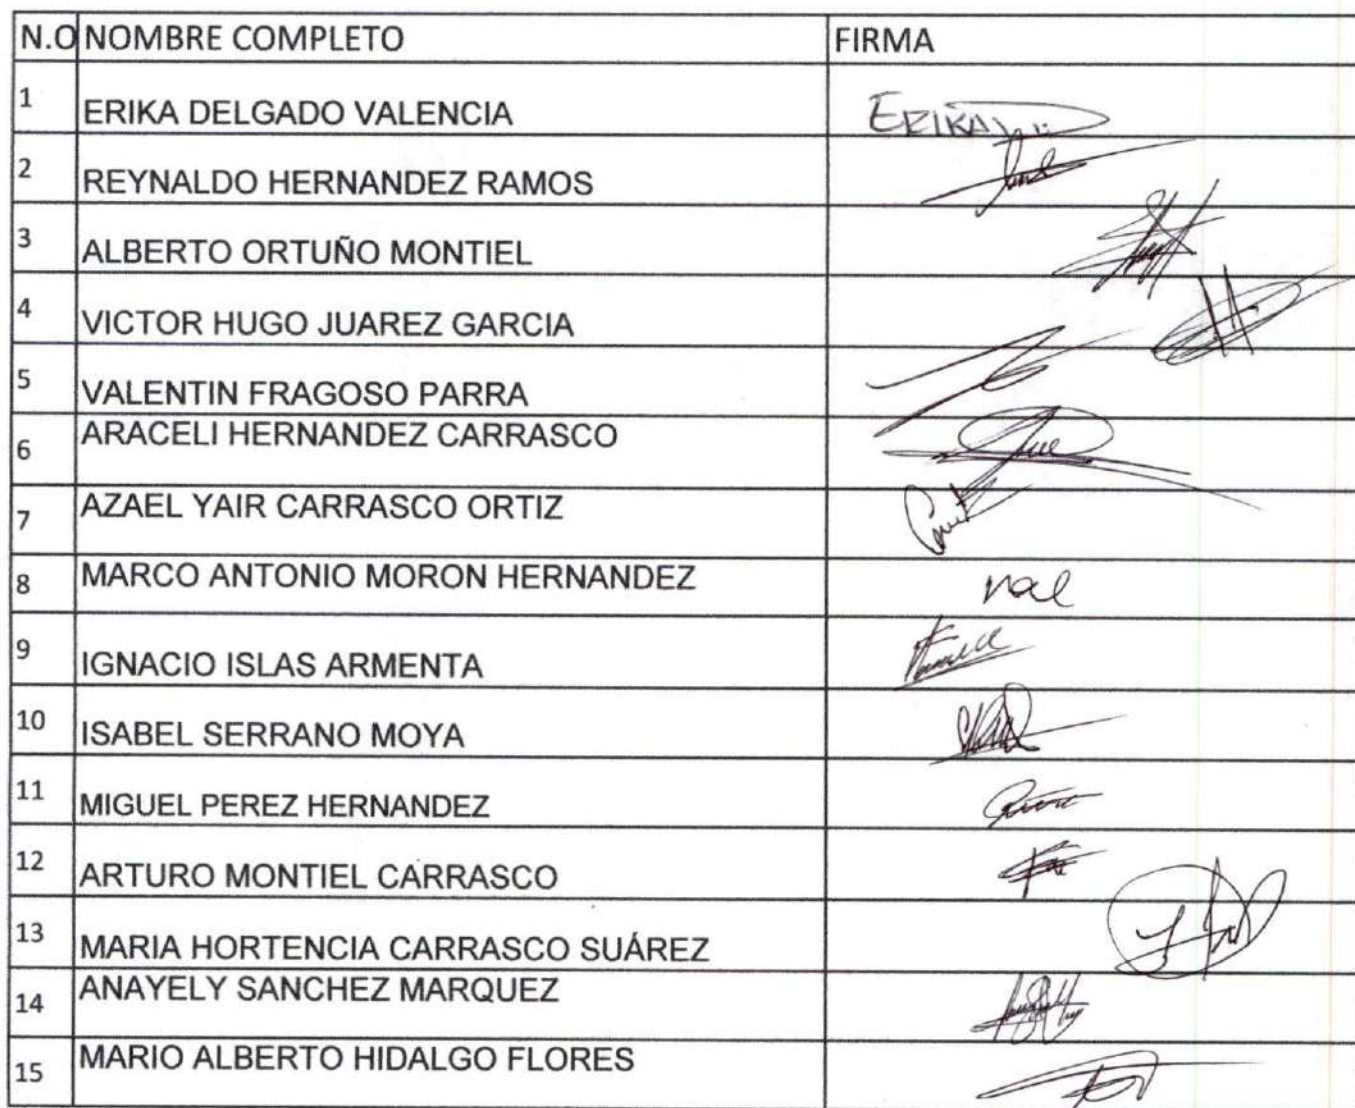 N.O NOMBRE COMPLETO FIRMA
1 ERIKA DELGADO VALENCIA ERIKA
2 REYNALDO HERNANDEZ RAMOS
3 ALBERTO ORTUÑO MONTIEL
4 VICTOR HUGO JUAREZ GARCIA
5 VALENTIN FRAGOSO PARRA
6 ARACELI HERNANDEZ CARRASCO
7 AZAEL YAIR CARRASCO ORTIZ
8 MARCO ANTONIO MORON HERNANDEZ
9 IGNACIO ISLAS ARMENTA
10 ISABEL SERRANO MOYA
11 MIGUEL PEREZ HERNANDEZ
12 ARTURO MONTIEL CARRASCO
13 MARIA HORTENCIA CARRASCO SUÁREZ
14 ANAYELY SANCHEZ MARQUEZ
15 MARIO ALBERTO HIDALGO FLORES